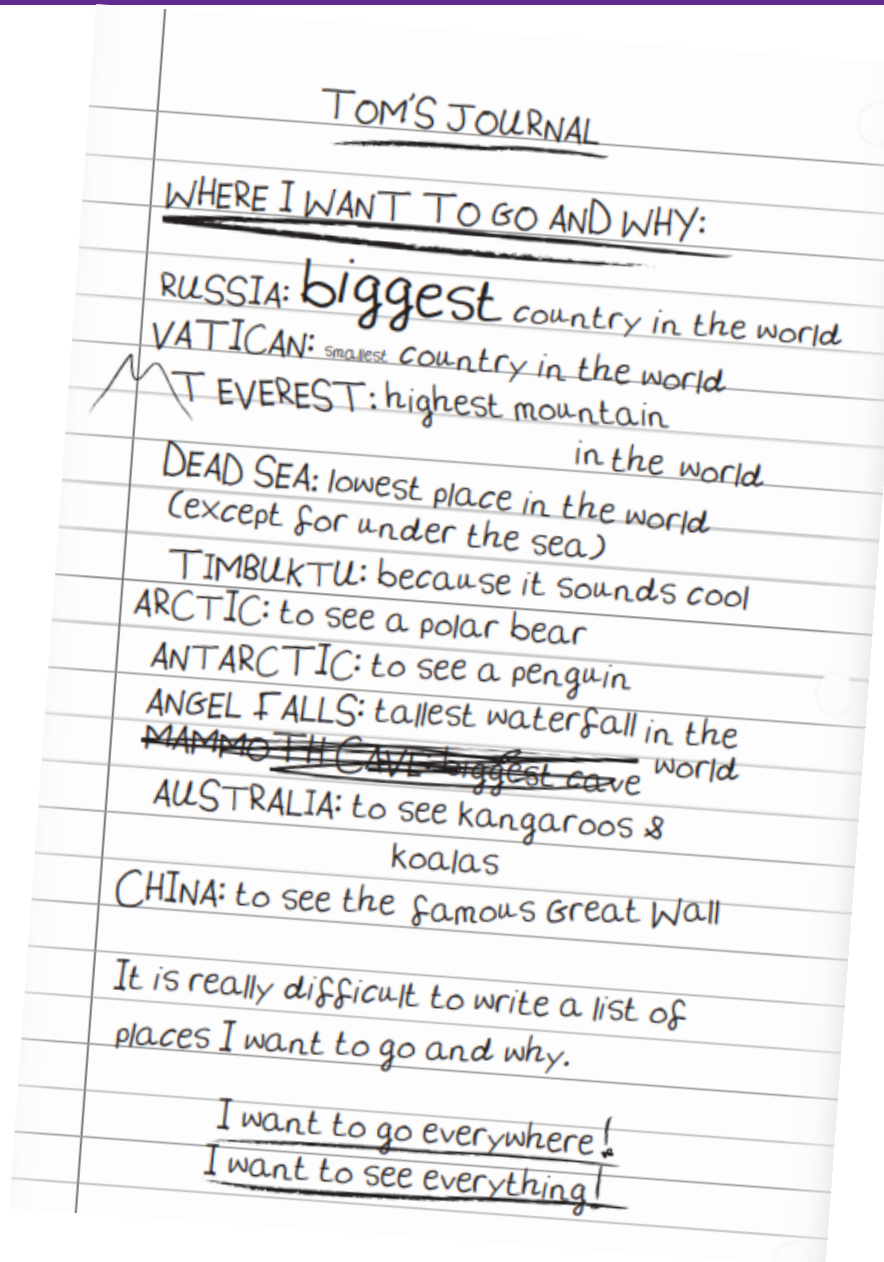 TOM'S JOURNAL
WHERE I WANT TO GO AND WHY:
RUSSIA: biggest country in the world
VATICAN: smallest country in the world
MT EVEREST: highest mountain
in the world
DEAD SEA: lowest place in the world
(except for under the sea)
TIMBUKTU: because it sounds cool
ARCTIC: to see a polar bear
ANTARCTIC: to see a penguin
ANGEL FALLS: tallest waterfall in the
world
MAMMOTH CAVE: biggest cave
AUSTRALIA: to see kangaroos &
koalas
CHINA: to see the famous Great Wall
It is really difficult to write a list of
places I want to go and why.
I want to go everywhere!
I want to see everything!